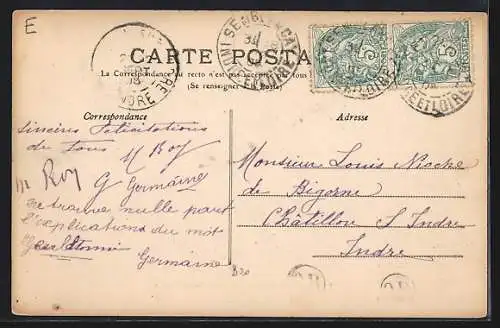 E
CARTE POSTALE
La Correspondance au recto n'est pas acceptée par tous
(Se renseigner à la Poste)
Correspondance
Adresse
sincères félicitations
de tous M Roy
Me Roy
G Germaine
retrouve nulle part
l'explication du mot
Germaine
Monsieur Louis
de Bigorne
Châtillon s Indre
Indre